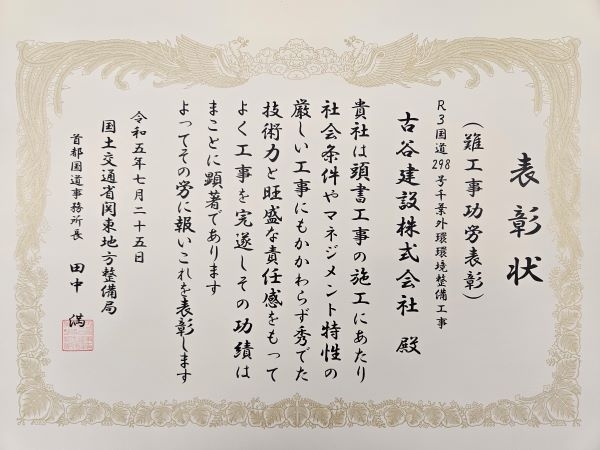 表彰状
(難工事功労表彰)
R3国道298号千葉外環環境整備工事
古谷建設株式会社 殿
貴社は頭書工事の施工にあたり
社会条件やマネジメント特性の
厳しい工事にもかかわらず秀でた
技術力と旺盛な責任感をもって
よく工事を完遂しその功績は
まことに顕著であります
よってその労に報いこれを表彰します
令和五年七月二十五日
国土交通省関東地方整備局
首都国道事務所長 田中 満